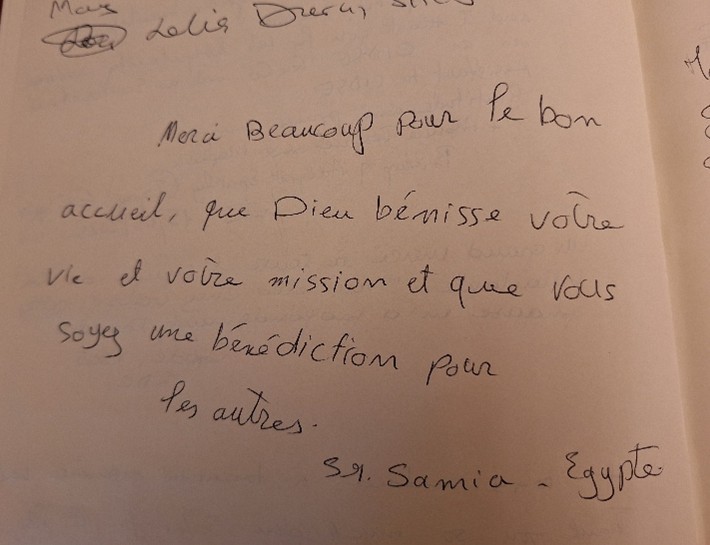 Merci Beaucoup pour le bon
accueil, que Dieu bénisse vôtre
vie et vôtre mission et que vous
soyez une bénédiction pour
les autres.
Sr. Samia - Egypte